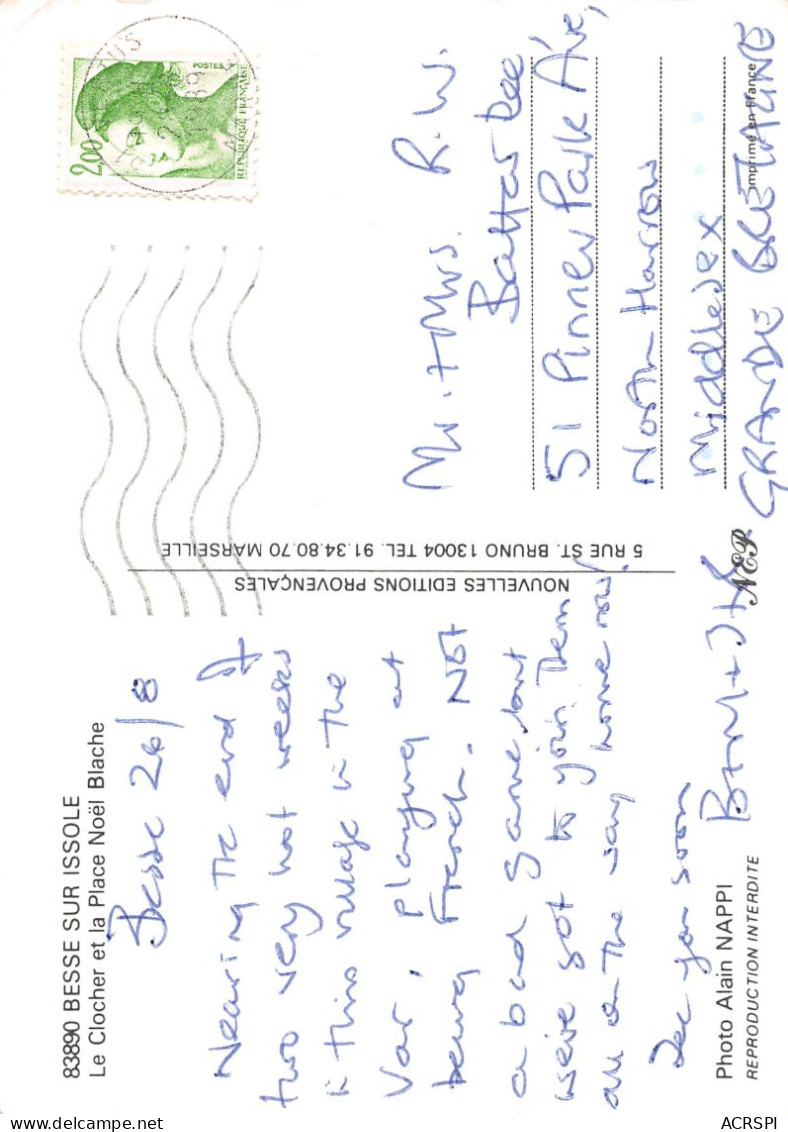 83890 BESSE SUR ISSOLE
Le Clocher et la Place Noël Blache
Besse 26/8
Nearing the end of
two very hot weeks
in this village in the
Var, playing at
being French. Not
a bad game but
we've got to join them
all on the way home now!
See you soon
Photo Alain NAPPI
REPRODUCTION INTERDITE
NOUVELLES EDITIONS PROVENÇALES
5 RUE ST. BRUNO 13004 TEL. 91.34.80.70 MARSEILLE
NEP
2,00
POSTES
REPUBLIQUE FRANÇAISE
Mr. + Mrs. R.W.
Battarbee
51 Pinner Park Ave,
North Harrow
Middlesex
GRANDE BRETAGNE
Imprimé en France
ACRSPI